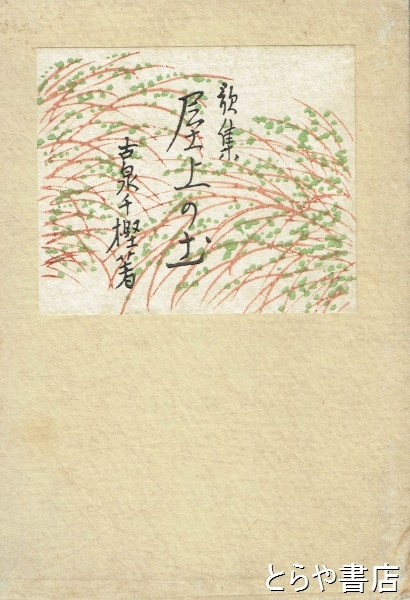 歌集
屋上の土
古泉千樫著
とらや書店